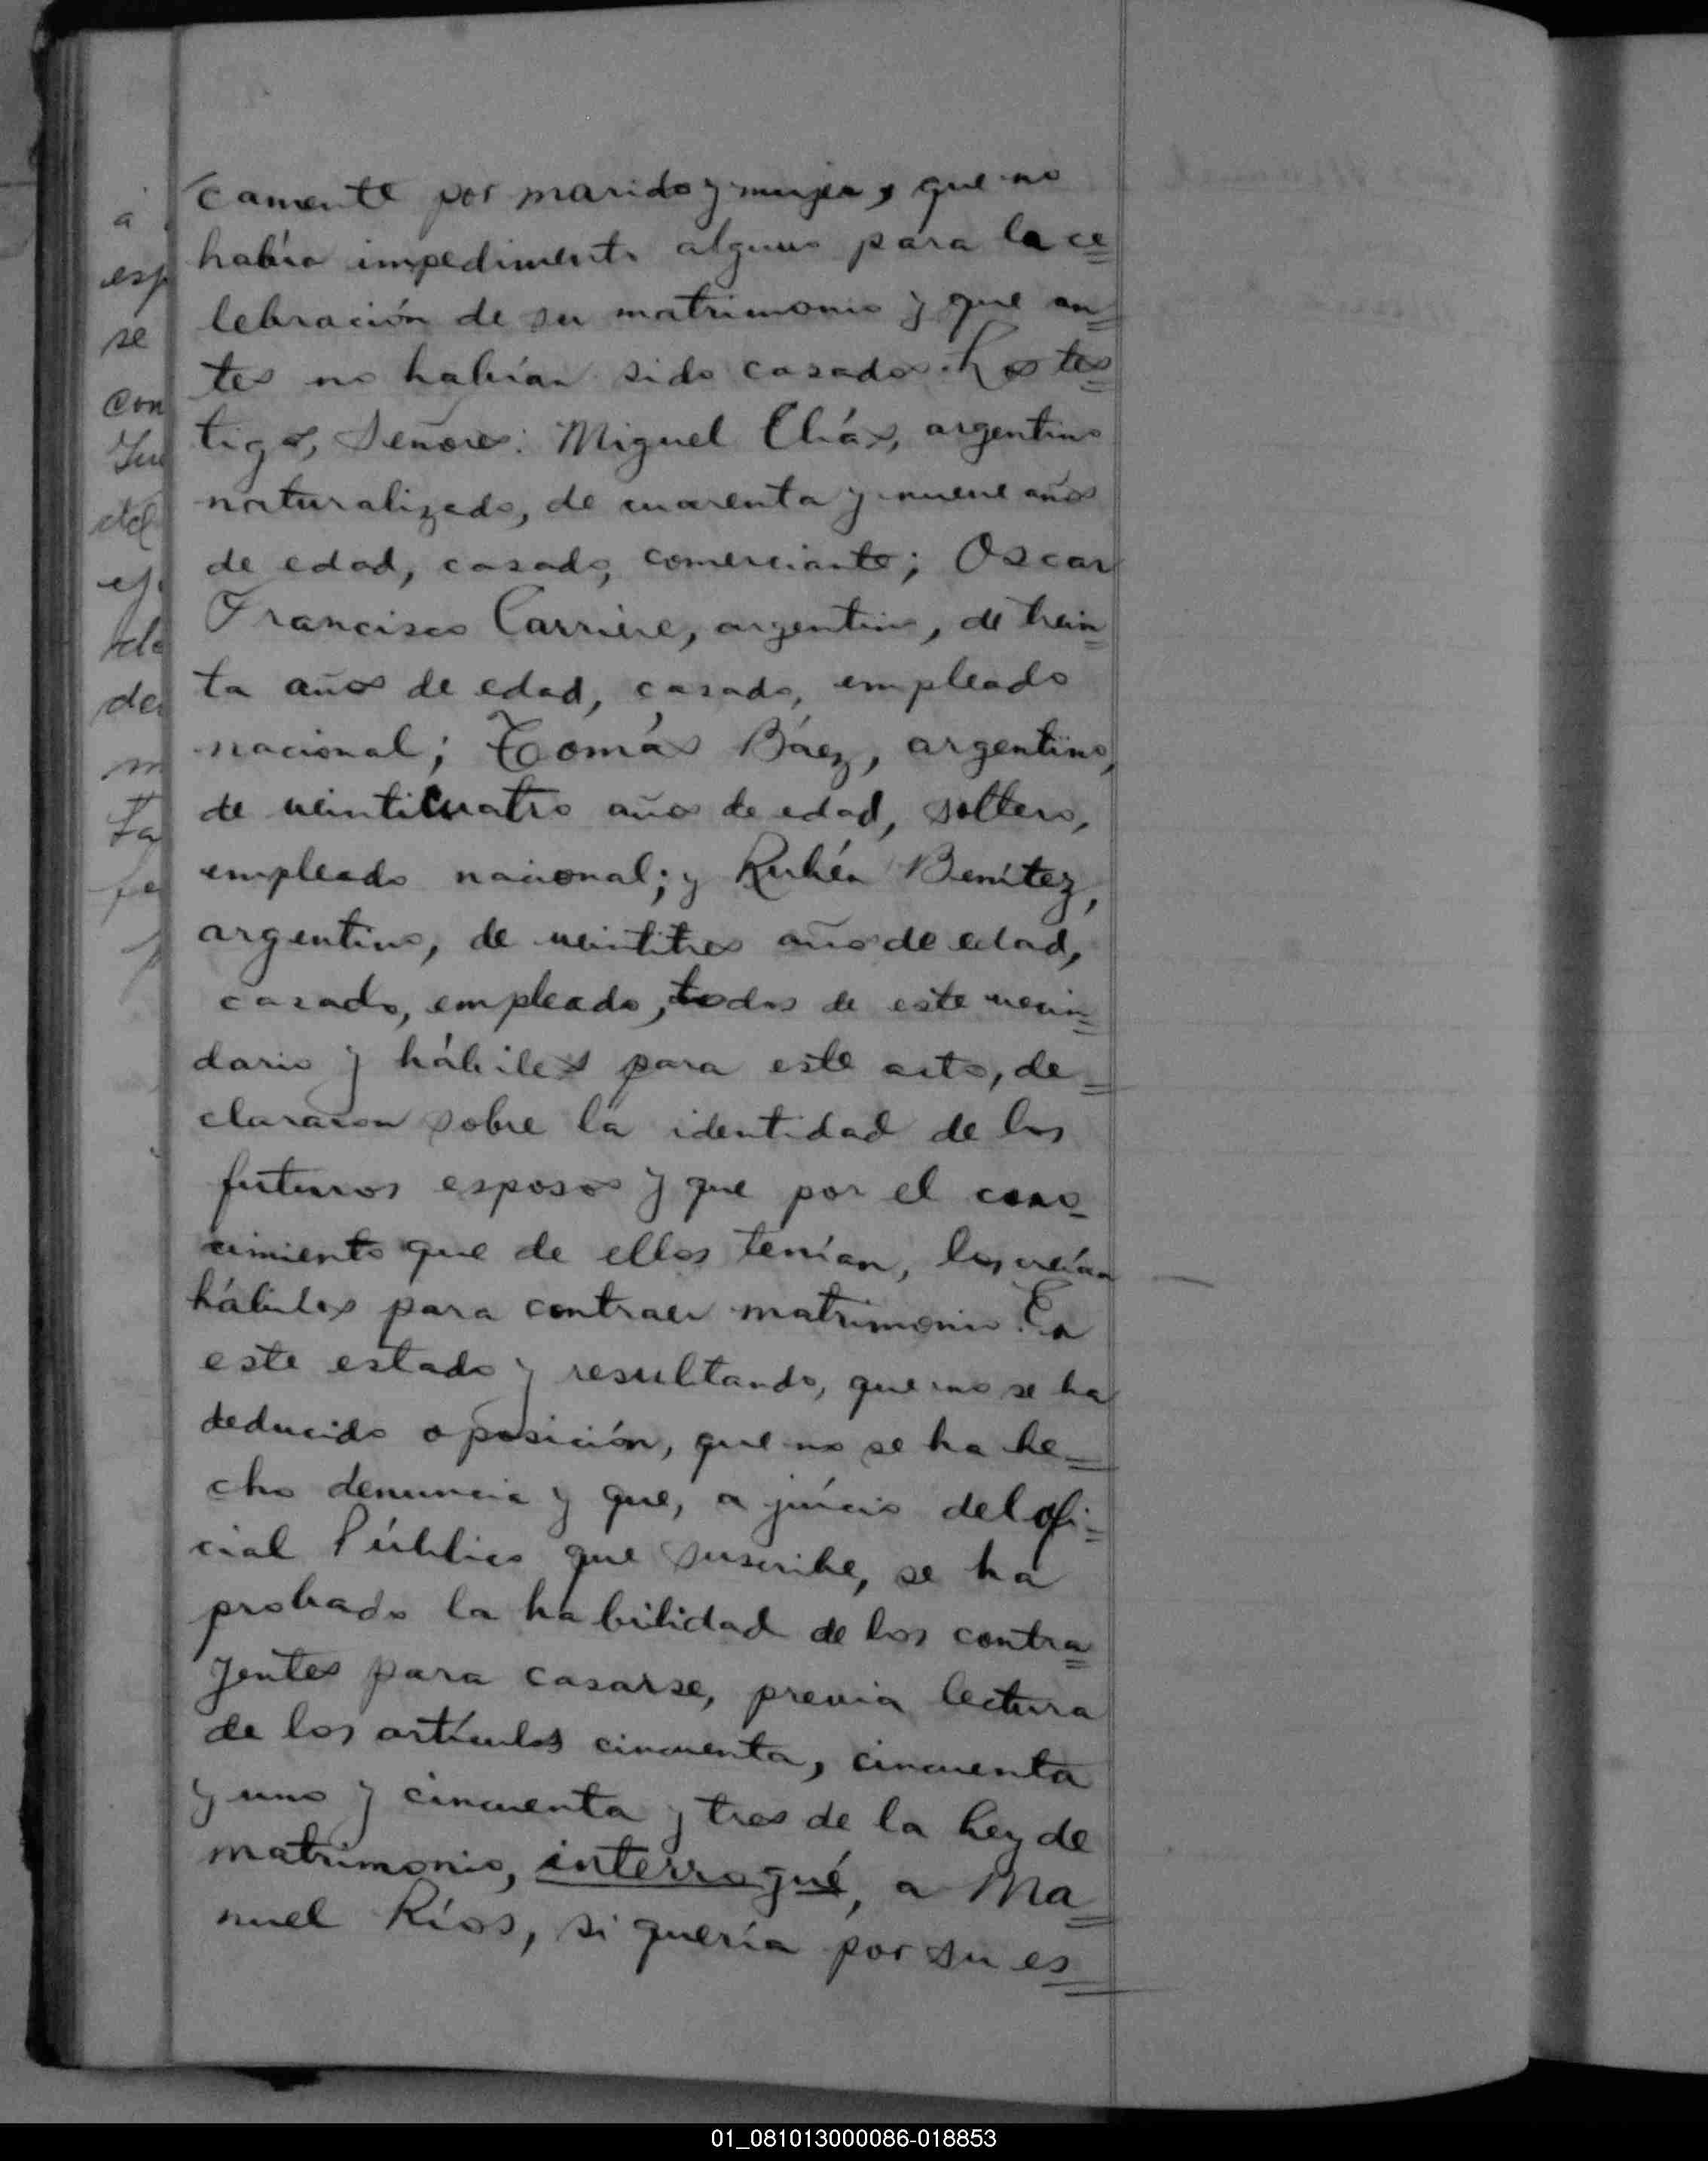 camente por marido y mujer, que no
había impedimento alguno para la ce=
lebración de su matrimonio y que an=
tes no habían sido casados. Los tes=
tigos, Señores: Miguel Elías, argentino
naturalizado, de cuarenta y nueve años
de edad, casado, comerciante; Oscar
Francisco Carriere, argentino, de trein=
ta años de edad, casado, empleado
nacional; Tomás Báez, argentino,
de veinticuatro años de edad, soltero,
empleado nacional; y Rubén Benítez,
argentino, de veintitres años de edad,
casado, empleado, todos de este vecin=
dario y hábiles para este acto, de=
clararon sobre la identidad de los
futuros esposos y que por el cono-
cimiento que de ellos tenían, los creían
hábiles para contraer matrimonio. En
este estado y resultando, que no se ha
deducido oposición, que no se ha he=
cho denuncia y que, a juicio del ofi=
cial Público que suscribe, se ha
probado la habilidad de los contra=
yentes para casarse, previa lectura
de los artículos cincuenta, cincuenta
y uno y cincuenta y tres de la Ley de
matrimonio, interrogué, a Ma=
nuel Ríos, si quería por su es=
a
esp
se
con
de
m
ta
01_081013000086-018853